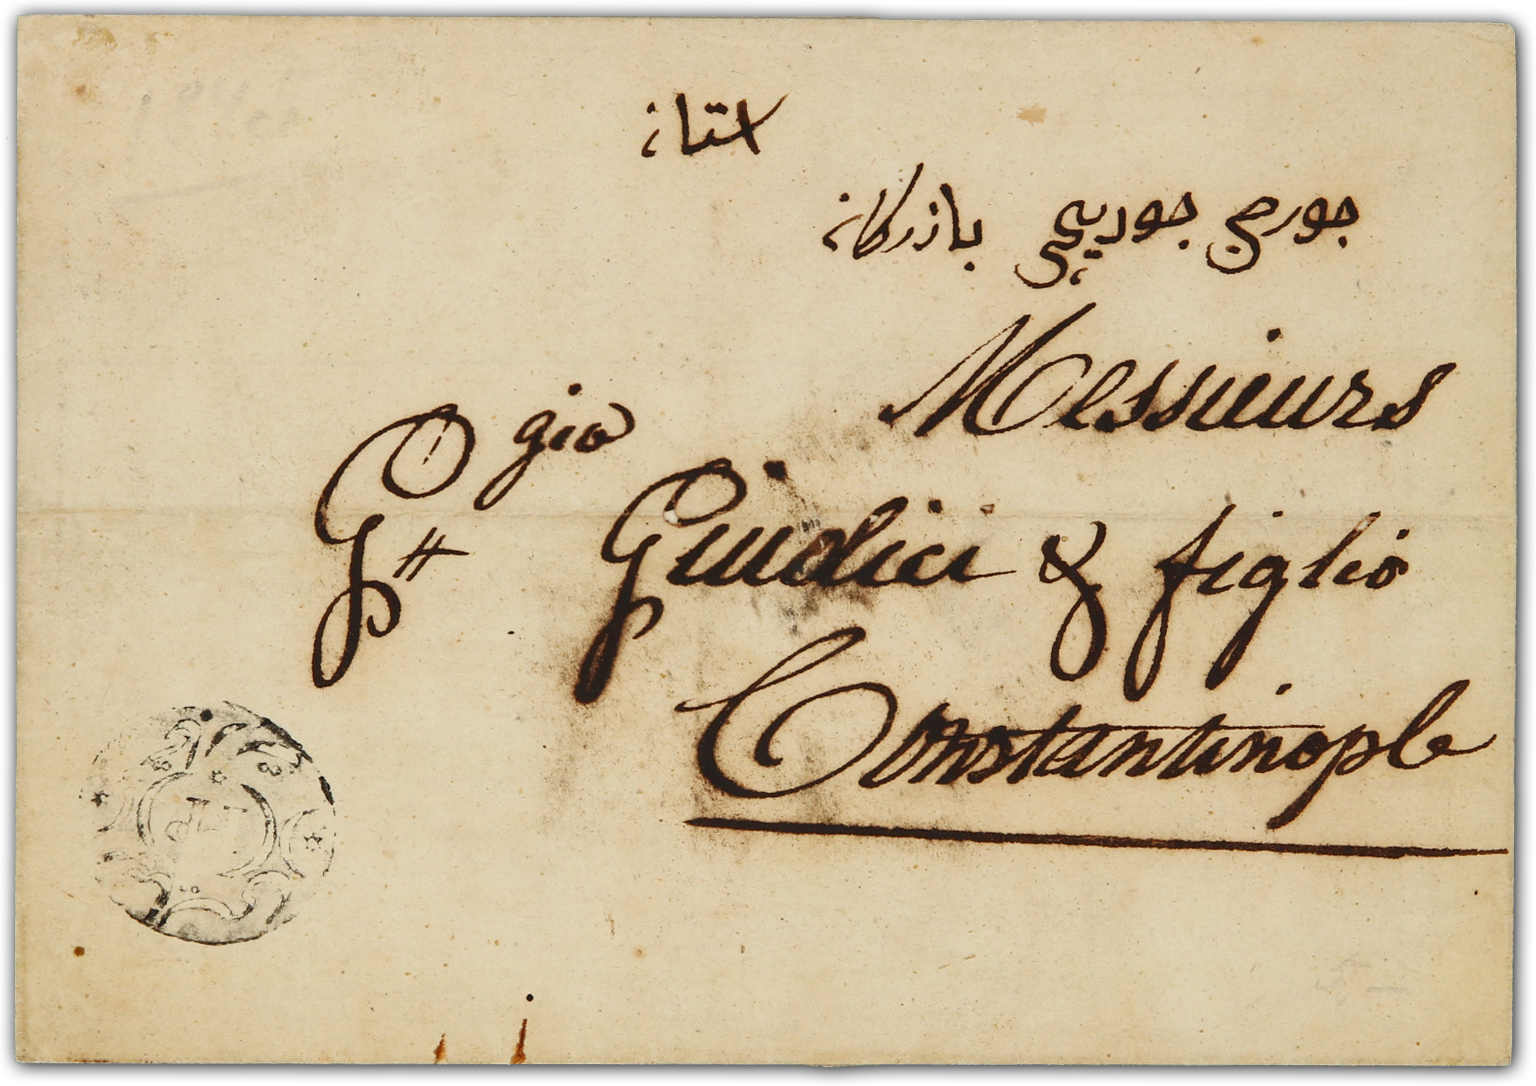 استانه
جورجي جوديچي بازركانه
Messieurs
G.gio Giudici & figlio
Constantinople